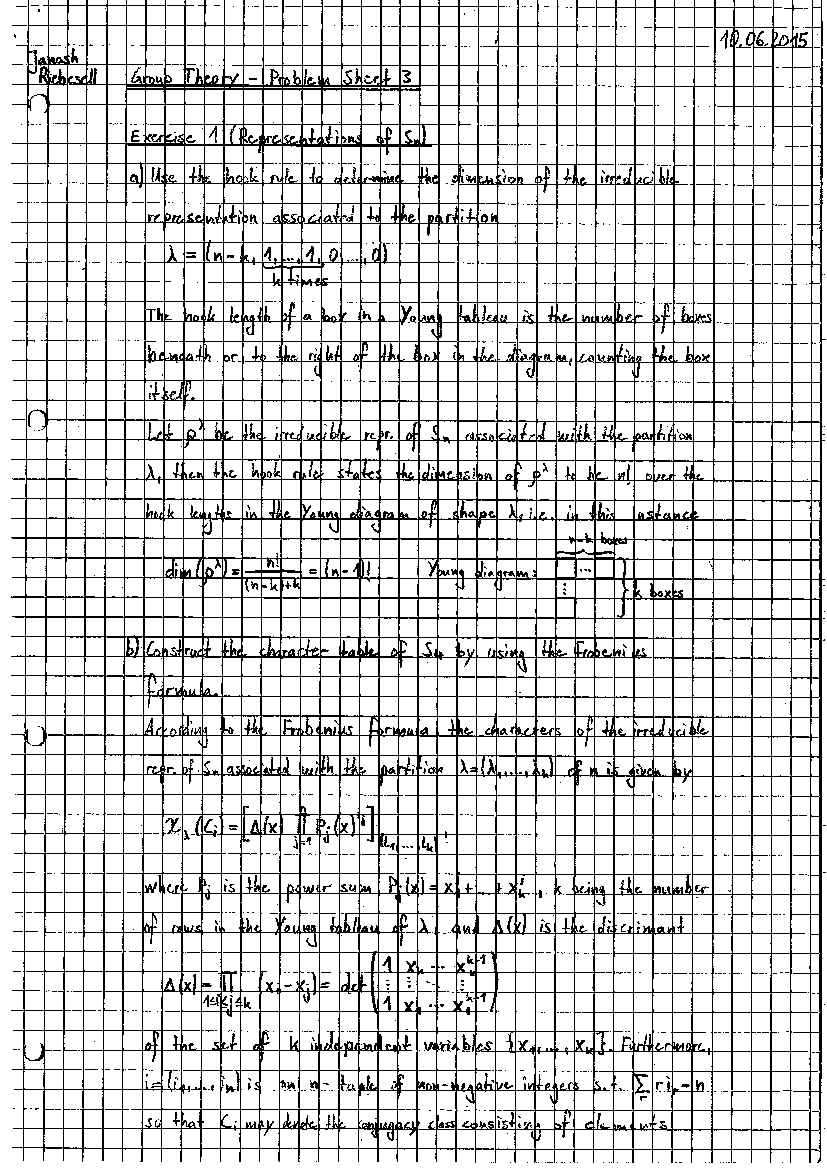 10.06.2015
Janosh
Riebesell
Group Theory – Problem Sheet 3
Exercise 1 (Representations of Sn)
a) Use the hook rule to determine the dimension of the irreducible
representation associated to the partition
λ = (n-k, 1,...,1, 0,...,0)
k times
The hook length of a box in a Young tableau is the number of boxes
beneath or to the right of the box in the diagram, counting the box
itself.
Let ρ^λ be the irreducible repr. of Sn associated with the partition
λ, then the hook rule states the dimension of ρ^λ to be n! over the
hook lengths in the Young diagram of shape λ, i.e. in this instance
n-k boxes
dim(ρ^λ) = n!/((n-k)+k) = (n-1)! Young diagram: ... ⋮ k boxes
b) Construct the character table of S4 by using the Frobenius
formula.
According to the Frobenius formula, the characters of the irreducible
repr. of Sn associated with the partition λ=(λ1,...,λk) of n is given by
χλ(Ci) = [Δ(x) ∏_{j=1}^{n} Pj(x)^{ij}]_{(l1,...,lk)},
where Pj is the power sum Pj(x) = x1^j + ... + xk^j, k being the number
of rows in the Young tableau of λ, and Δ(x) is the discrimant
Δ(x) = ∏_{1≤i<j≤k} (xi-xj) = det (1 xk ... xk^{k-1} ⋮ ⋮ ⋱ ⋮ 1 x1 ... x1^{k-1})
of the set of k independent variables {x1,...,xk}. Furthermore,
i=(i1,...,in) is an n-tuple of non-negative integers s.t. Σ_r r ir = n
so that Ci may denote the conjugacy class consisting of elements